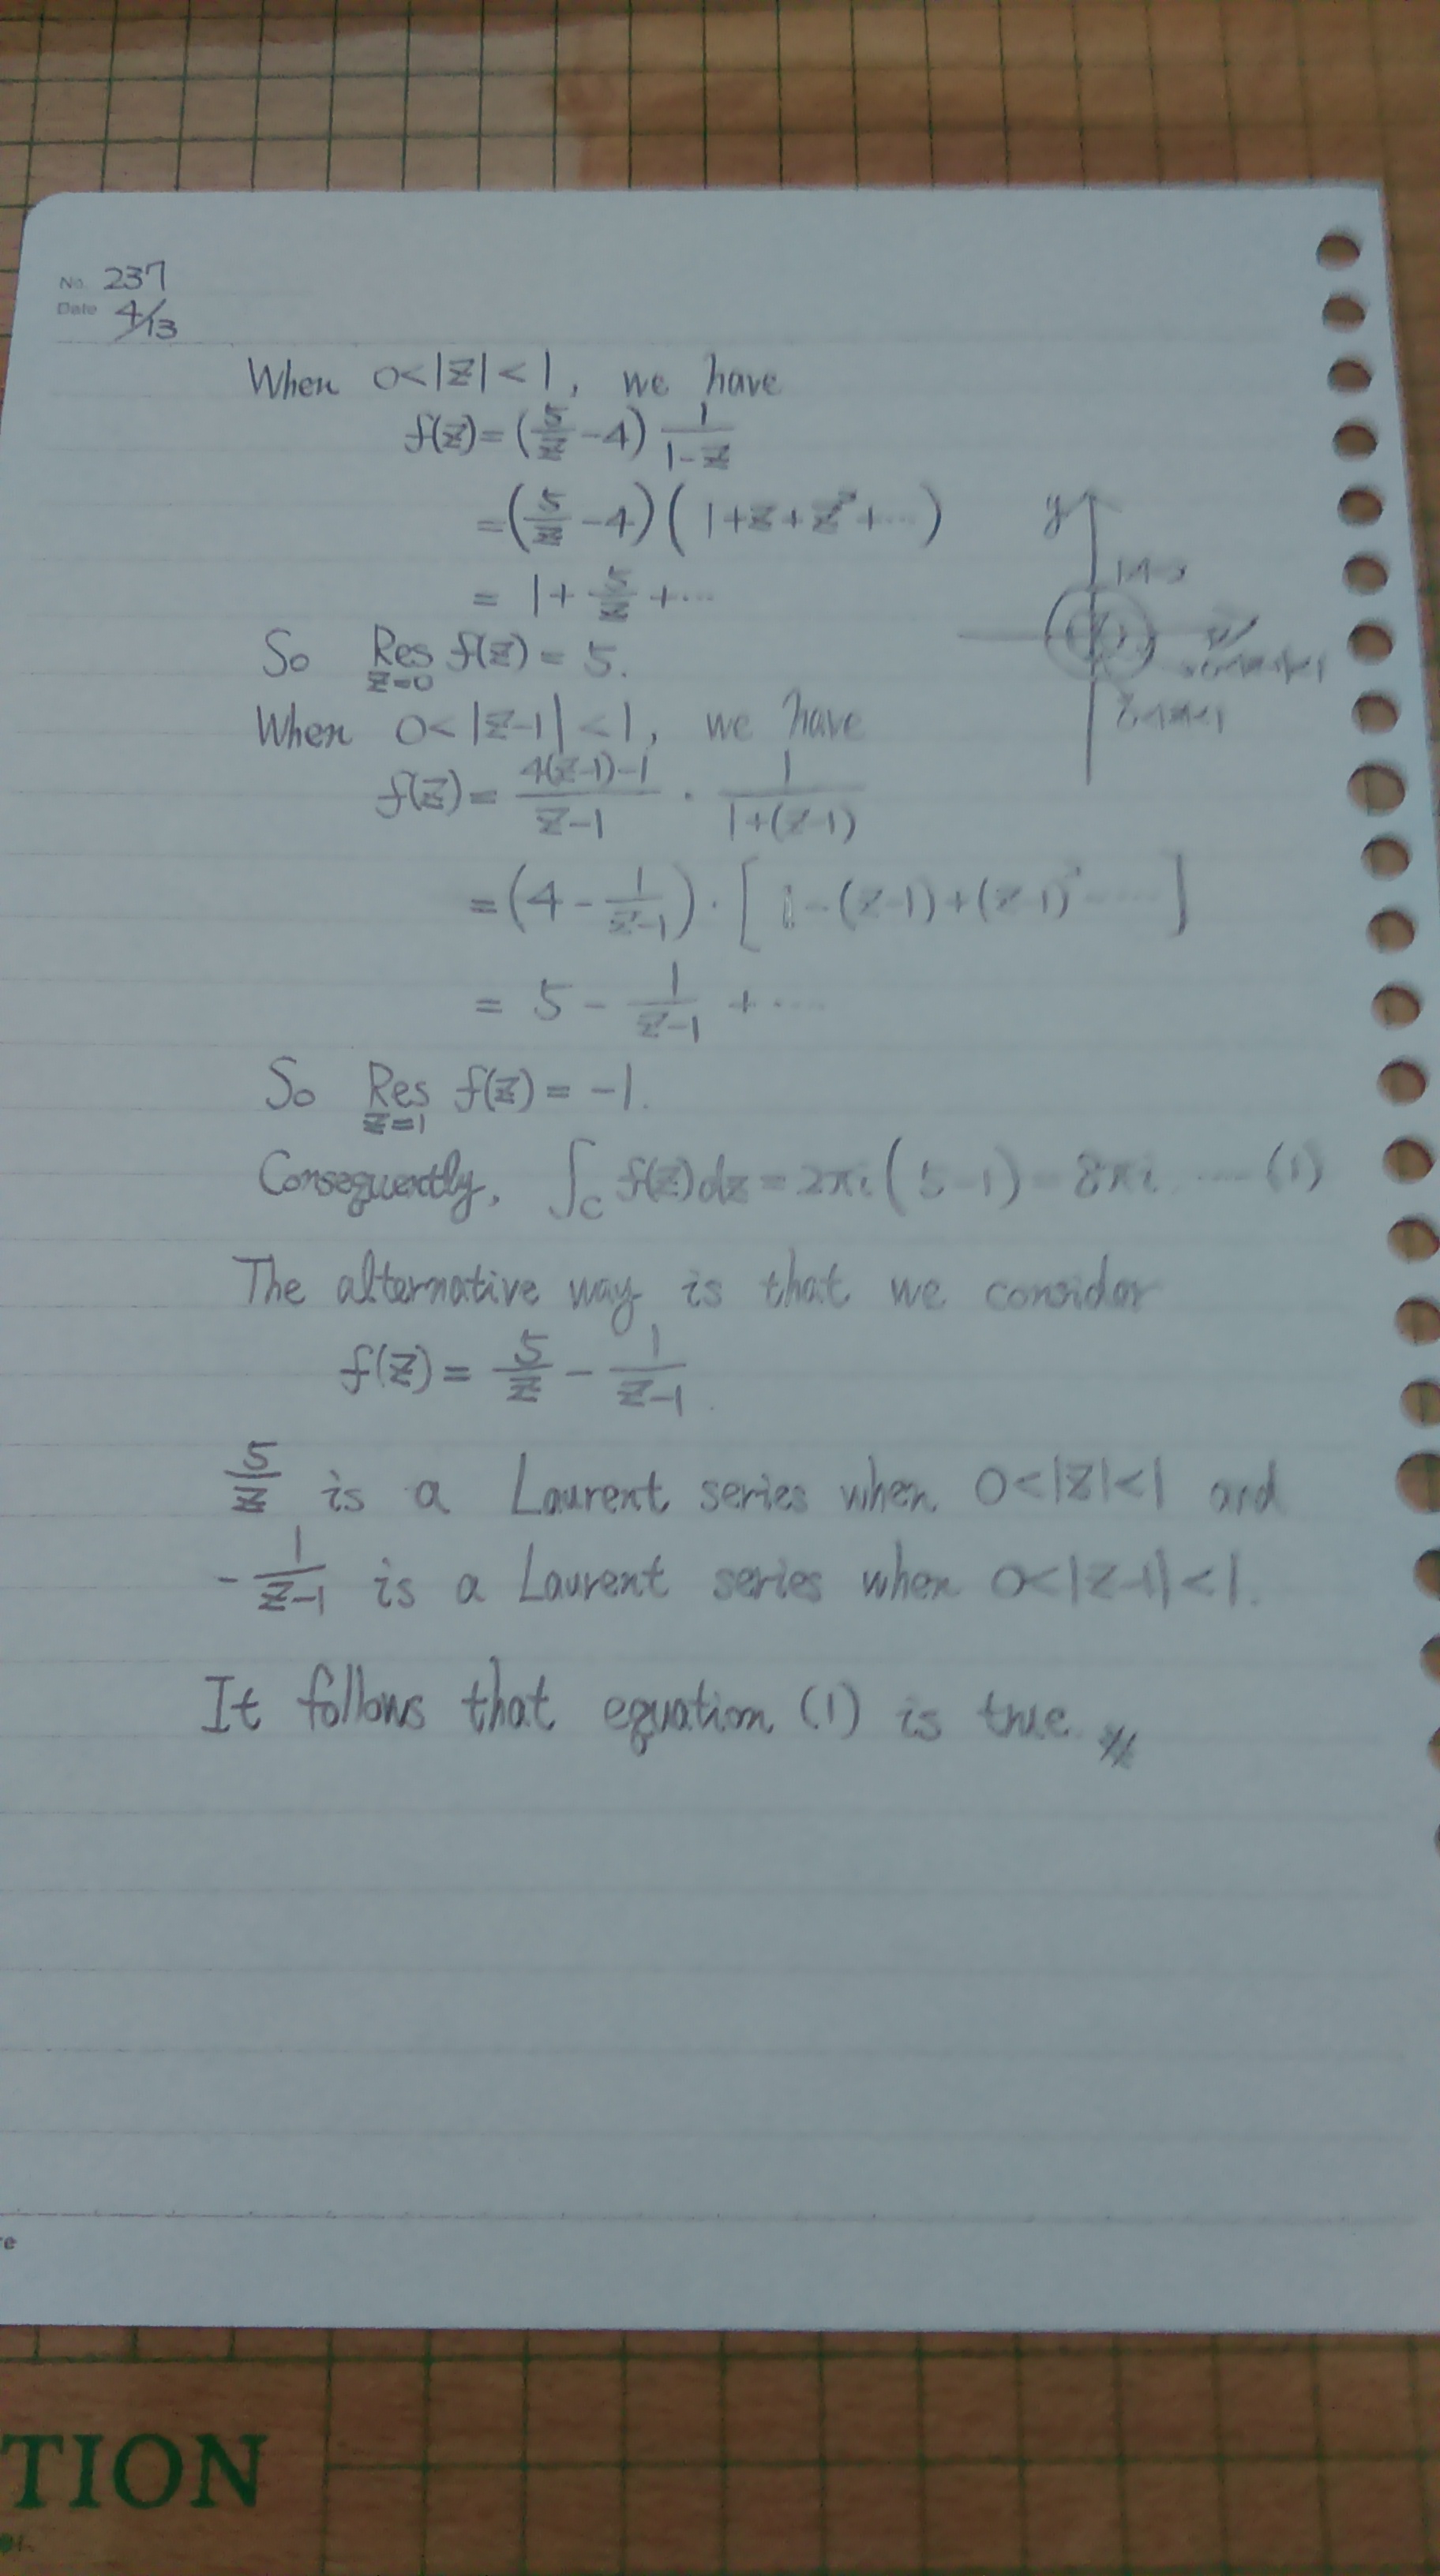 No. 237
Date 4/13
When 0<|z|<1, we have
f(z)=(5/z-4) 1/(1-z)
=(5/z-4)(1+z+z²+...)
= 1+5/z+...
So Res z=0 f(z)= 5.
y
When 0<|z-1|<1, we have
f(z)= (4(z-1)-1)/(z-1) · 1/(1+(z-1))
=(4-1/(z-1))·[1-(z-1)+(z-1)²-....]
= 5-1/(z-1)+....
So Res z=1 f(z)= -1.
Consequently, ∫C f(z)dz=2πi(5-1)=8πi. ....(1)
The alternative way is that we consider
f(z)= 5/z - 1/(z-1).
5/z is a Laurent series when 0<|z|<1 and
-1/(z-1) is a Laurent series when 0<|z-1|<1.
It follows that equation (1) is true.
TION